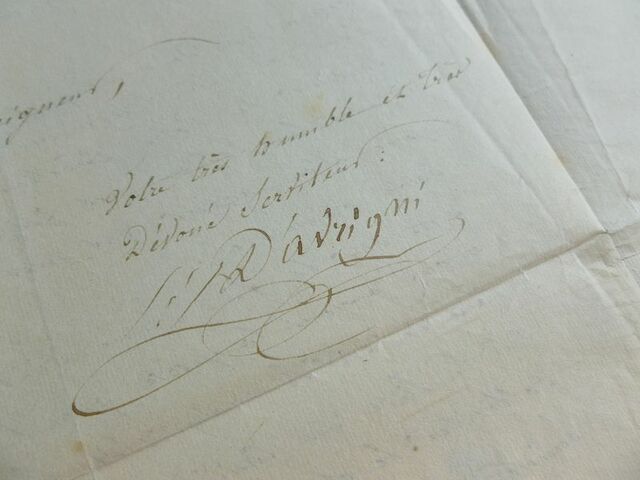 Votre très humble et très
Dévoué Serviteur :
D'avrigni